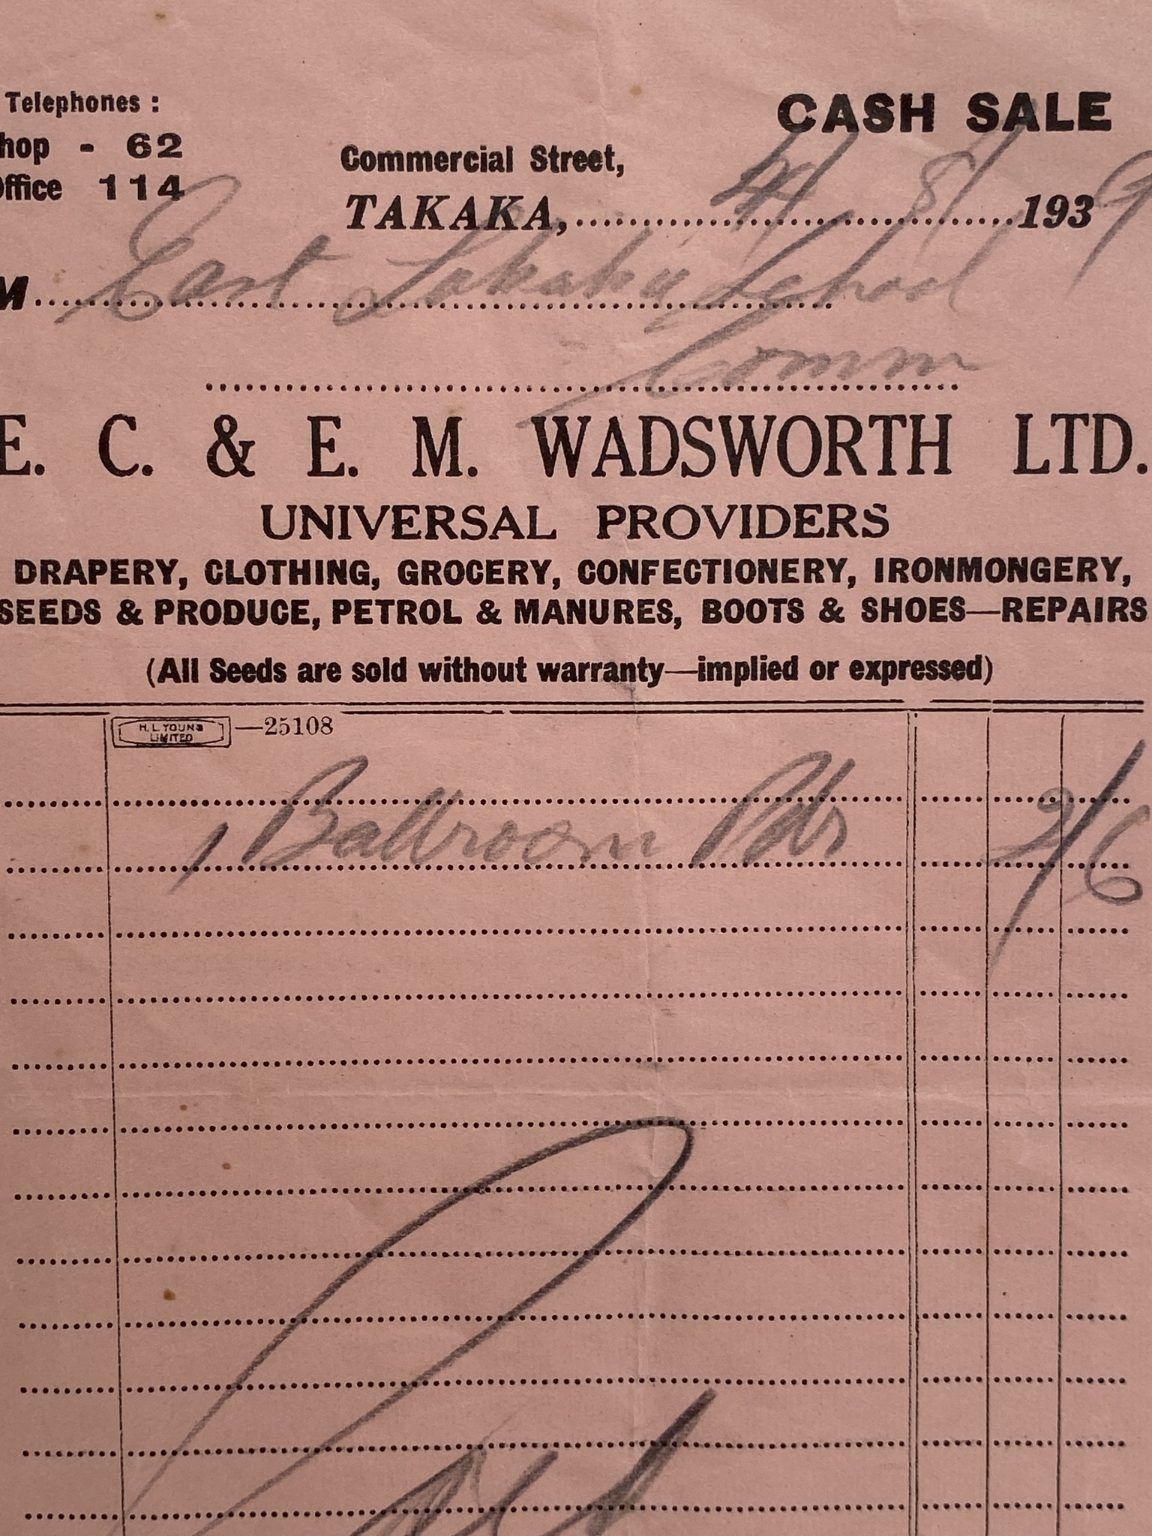 Telephones :
hop - 62
Office 114
CASH SALE
Commercial Street,
TAKAKA, 4/8/1939
M East Takaka School
Comm
E. C. & E. M. WADSWORTH LTD.
UNIVERSAL PROVIDERS
DRAPERY, CLOTHING, GROCERY, CONFECTIONERY, IRONMONGERY,
SEEDS & PRODUCE, PETROL & MANURES, BOOTS & SHOES—REPAIRS
(All Seeds are sold without warranty—implied or expressed)
H. L. YOUNG LIMITED —25108
1 Ballroom Pdr 2/6